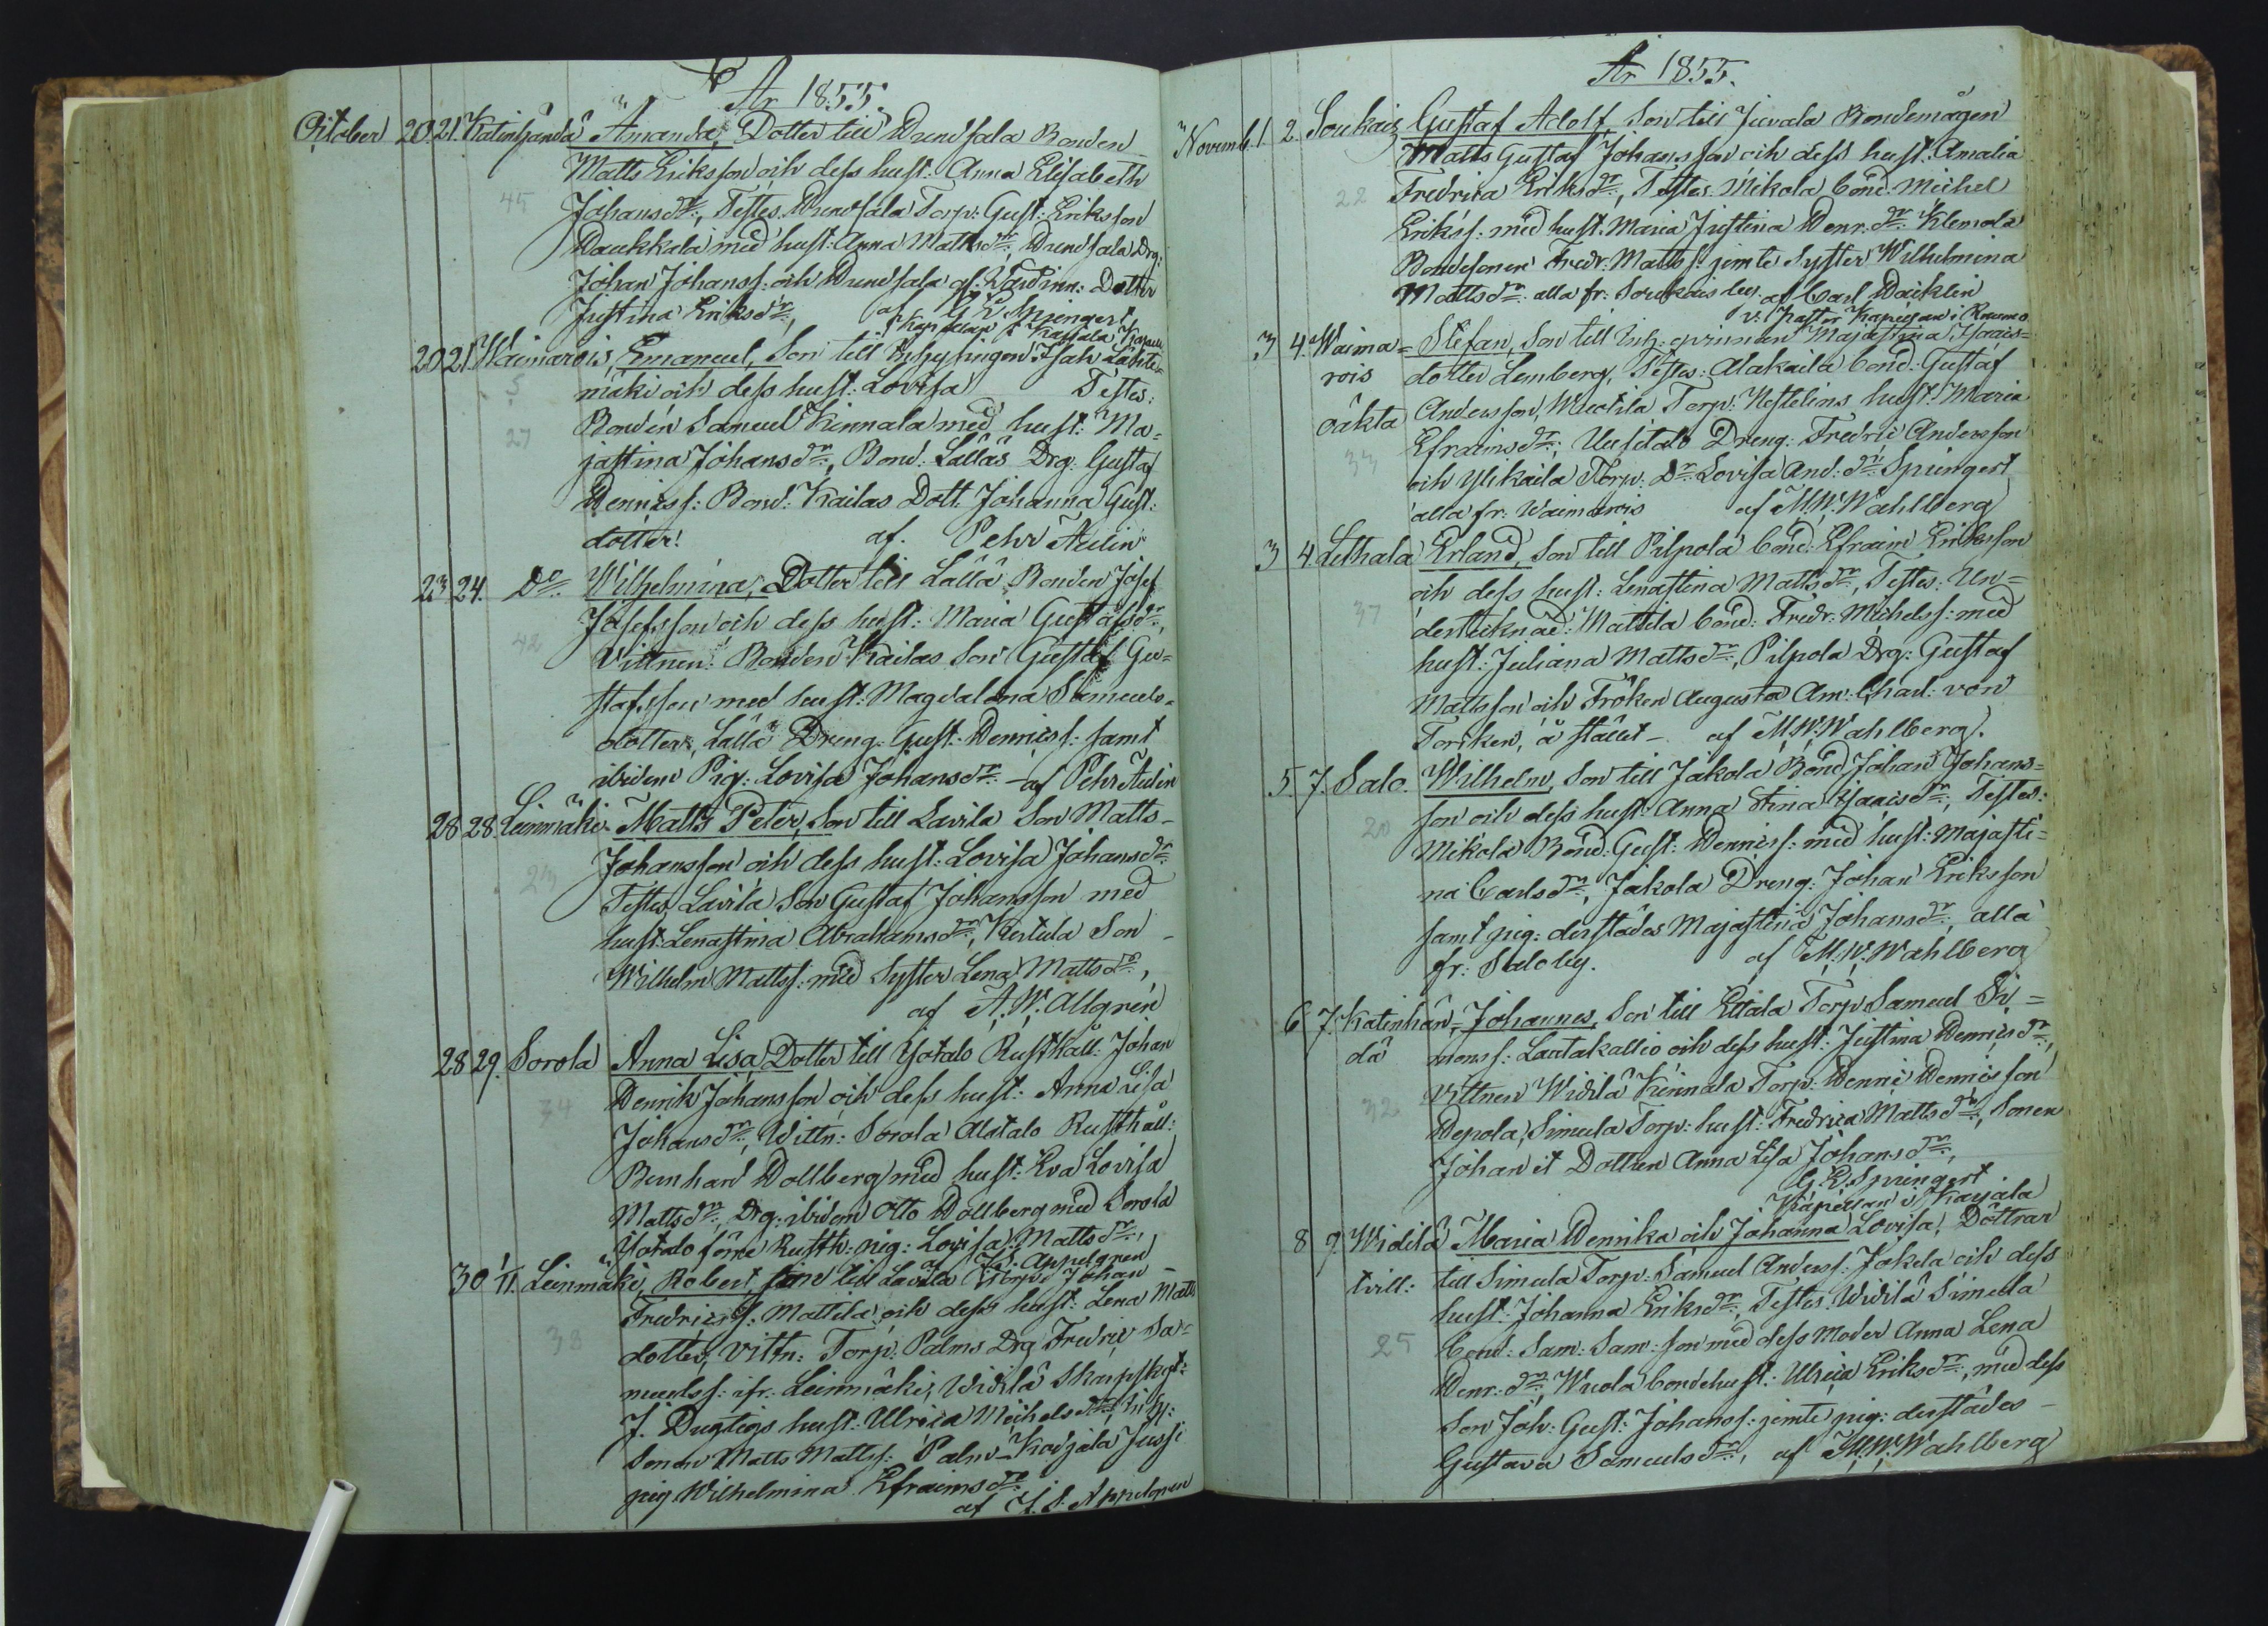 År 1855.
October 20. 21. Katinhändä Amanda, Dotter till Hundsala Bonden
Matts Eriksson och dess hust: Anna Elisabeth
45 Johansdr:, Testes Hundsala Torp: Gust: Eriksson
Haukkala med hust: Anna Mattsdr:, Hundsala Drg:
Johan Johanss: och Hundsala gl: Värdinn: Dotter
Justina Eriksdr:, af G E Springert
Kapellan i Karjala Kapell
20 21. Waimarois, Emanuel, Son till Inhysingen Isak Lähte-
5 mäki och dess hust: Lovisa Testes:
27 Bonden Samuel Kinnala med hust: Ma-
jastina Johansdr:, Bond: Lallas Drg: Gustaf
Henriss: Bond: Kailas Dott. Johanna Gust:
dotter. af. Pehr Aulin
23 24. Do Wilhelmina, Dotter till Lallâ Bonden Josef
Josefsson och dess hust: Maria Gustafsdr:,
42 Vittnen: Bonden Kailas Son Gustaf Gu-
stafsson med hust: Magdalena Samuels-
dotter, Lallâ Dreng: Gust: Henrics: samt
ibidem Pig: Lovisa Johansdr: - af Pehr Aulin
28 28. Leinmäki Matts Peter, Son till Lavila Son Matts-
Johansson och dess hust: Lovisa Johansdr:
23 Testes, Lavila Son Gustaf Johansson med
hust: Lenastina Abrahamsdr:, Kustula Son
Wilhelm Mattss: med Syster Lena Mattsdr:,
af A. W. Allgrén
28 29. Sorola Anna Lisa, Dotter till Yotalo Rusthåll: Johan
34 Henrik Johansson och dess hust: Anna Lisa
Johansdr:, Vittn: Sorola Alatalo Rusthåll:
Bernhard Hollberg med hust: Eva Lovisa
Mattsdr:, Drg: ibidem Otto Hollberg med Sorola
Yotalo förre Rusth: pig: Lovisa Mattsdr:,
af J. S. Appelgren
30 1/11. Leinmäki, Robert, son till Lavila Torp: Johan
Fredricss: Mattila och dess hust: Lena Matts
38 dotter, Vittn: Torp: Palms Drg Fredric Sa-
muelss: ifr. Leinmäki, Widilâ Skarpskytt:
J. Dugtigs hust: Ulrica Michelsdr:, Inhy:
Sonen Matts Mattss: Palm Karjala Jussi
pig Wilhelmina Efraimsdr:
af J. S. Appelgren
År 1855.
Novemb. 1. 2. Soukais Gustaf Adolf, Son till Juvala Bondemågen
Matts Gustaf Johansson och dess hust: Amalia
22 Fredrica Eriksdr:, Testes Mikola bond: Michel
Erikss: med hust: Maria Justina Henr: dr: Klemola
Bondesonen Fredr: Mattss: jemte Syster Wilhelmina
Mattsdr: alla fr: Soukais by. af Carl Häcklin
v: Pastor Kapellan i Raumo
3 4. Waima- Stefan, Son till Inh: qvinnan Majastina Isacs-
rois dotter Lemberg, Testes: Alakaila bond: Gustaf
oäkta Andersson, Wuotila Torp: Nestelins hust: Maria
33 Efraimsdr:, Uusitalo Dreng: Fredric Andersson
och Ylikaila Torp: Dr: Lovisa And: dr: Springert
alla fr: Waimarois af M. W. Wahlberg
3 4. Lethala Erland, Son till Pilpola bond: Efraim Eriksson
och dess hust: Lenastina Mattsdr:, Testes: Un-
37 dertecknad: Mattila bond: Fredr: Michelss: med
hust: Juliana Mattsdr:, Pilpola Drg: Gustaf
Mattsson och Fröken Augusta Am: Charl: von
Torken, å stället - af M. W. Wahlberg.
5. 7. Salo. Wilhelm, Son till Jakola Bond Johan Johans-
son och dess hust: Anna Stina Isacsdr:, Testes:
20 Mikola Bond: Gust: Henriss: med hust: Majasti-
na Carlsdr:, Jakola Dreng: Johan Eriksson
samt pig: derstädes Majastina Johansdr:, alla
fr: Salo by. af M. W. Wahlberg
6 7. Katinhän- Johannes, Son till Ettala Torp: Samuel Si-
dä monss: Lautakallio och dess hust: Justina Henricsdr:,
32 Vittnen Widilâ Kinnala Torp: Henric Henricsson
Hepola, Simula Torp: hust: Fredrica Mattsdr:, Sonen
Johan et Dottren Anna Lisa Johansdr:,
G. E. Springert
Kapellan i Karjala
8 9. Widilâ Maria Henrika och Johanna Lovisa, Döttrar
tvill: till Simula Torp: Samuel Anderss: Jokela och dess
hust: Johanna Eriksdr:, Testes: Widilâ Simula
25 bond: Sam: Sam: son med dess Moder Anna Lena
Henr: dr:, Wuola bondehust: Ulrica Eriksdr:, med dess
Son Joh: Gust: Johanss: jemte pig: derstädes
Gustava Samuelsdr:, af M. W. Wahlberg